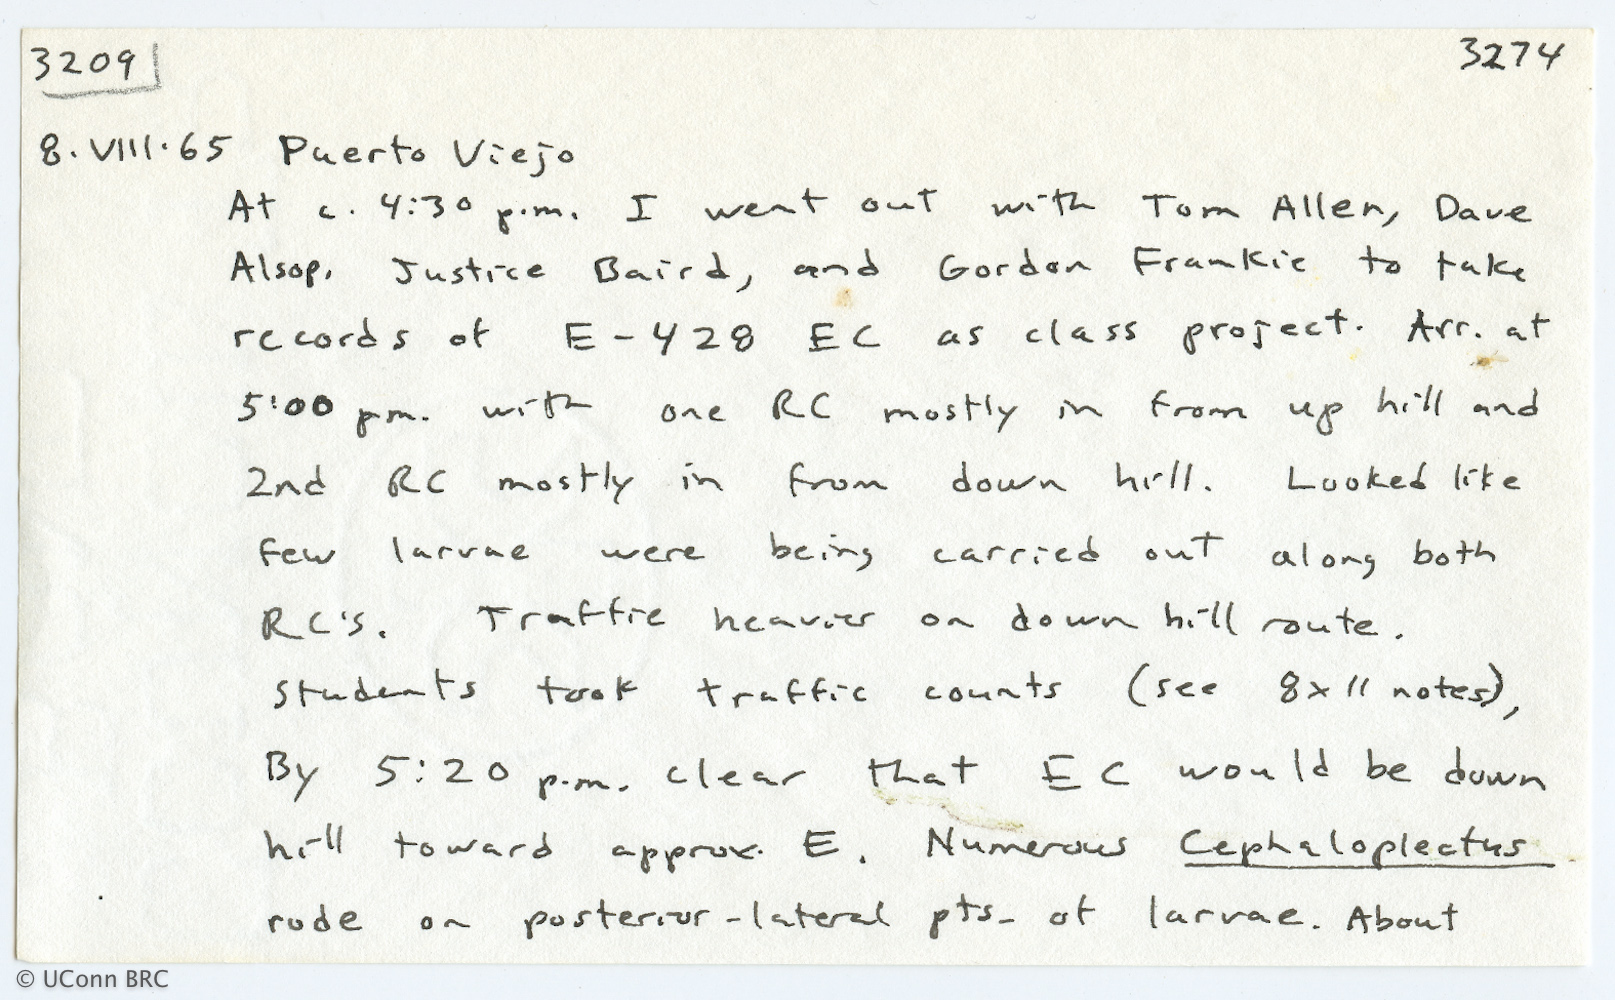 3209 3274
8.VIII.65 Puerto Viejo
At c. 4:30 p.m. I went out with Tom Allen, Dave
Alsop, Justice Baird, and Gordon Frankie to take
records of E-428 EC as class project. Arr. at
5:00 p.m. with one RC mostly in from up hill and
2nd RC mostly in from down hill. Looked like
few larvae were being carried out along both
RC's. Traffic heavier on down hill route.
Students took traffic counts (see 8x11 notes),
By 5:20 p.m. clear that EC would be down
hill toward approx. E. Numerous Cephaloplectus
rode on posterior-lateral pts. of larvae. About
© UConn BRC